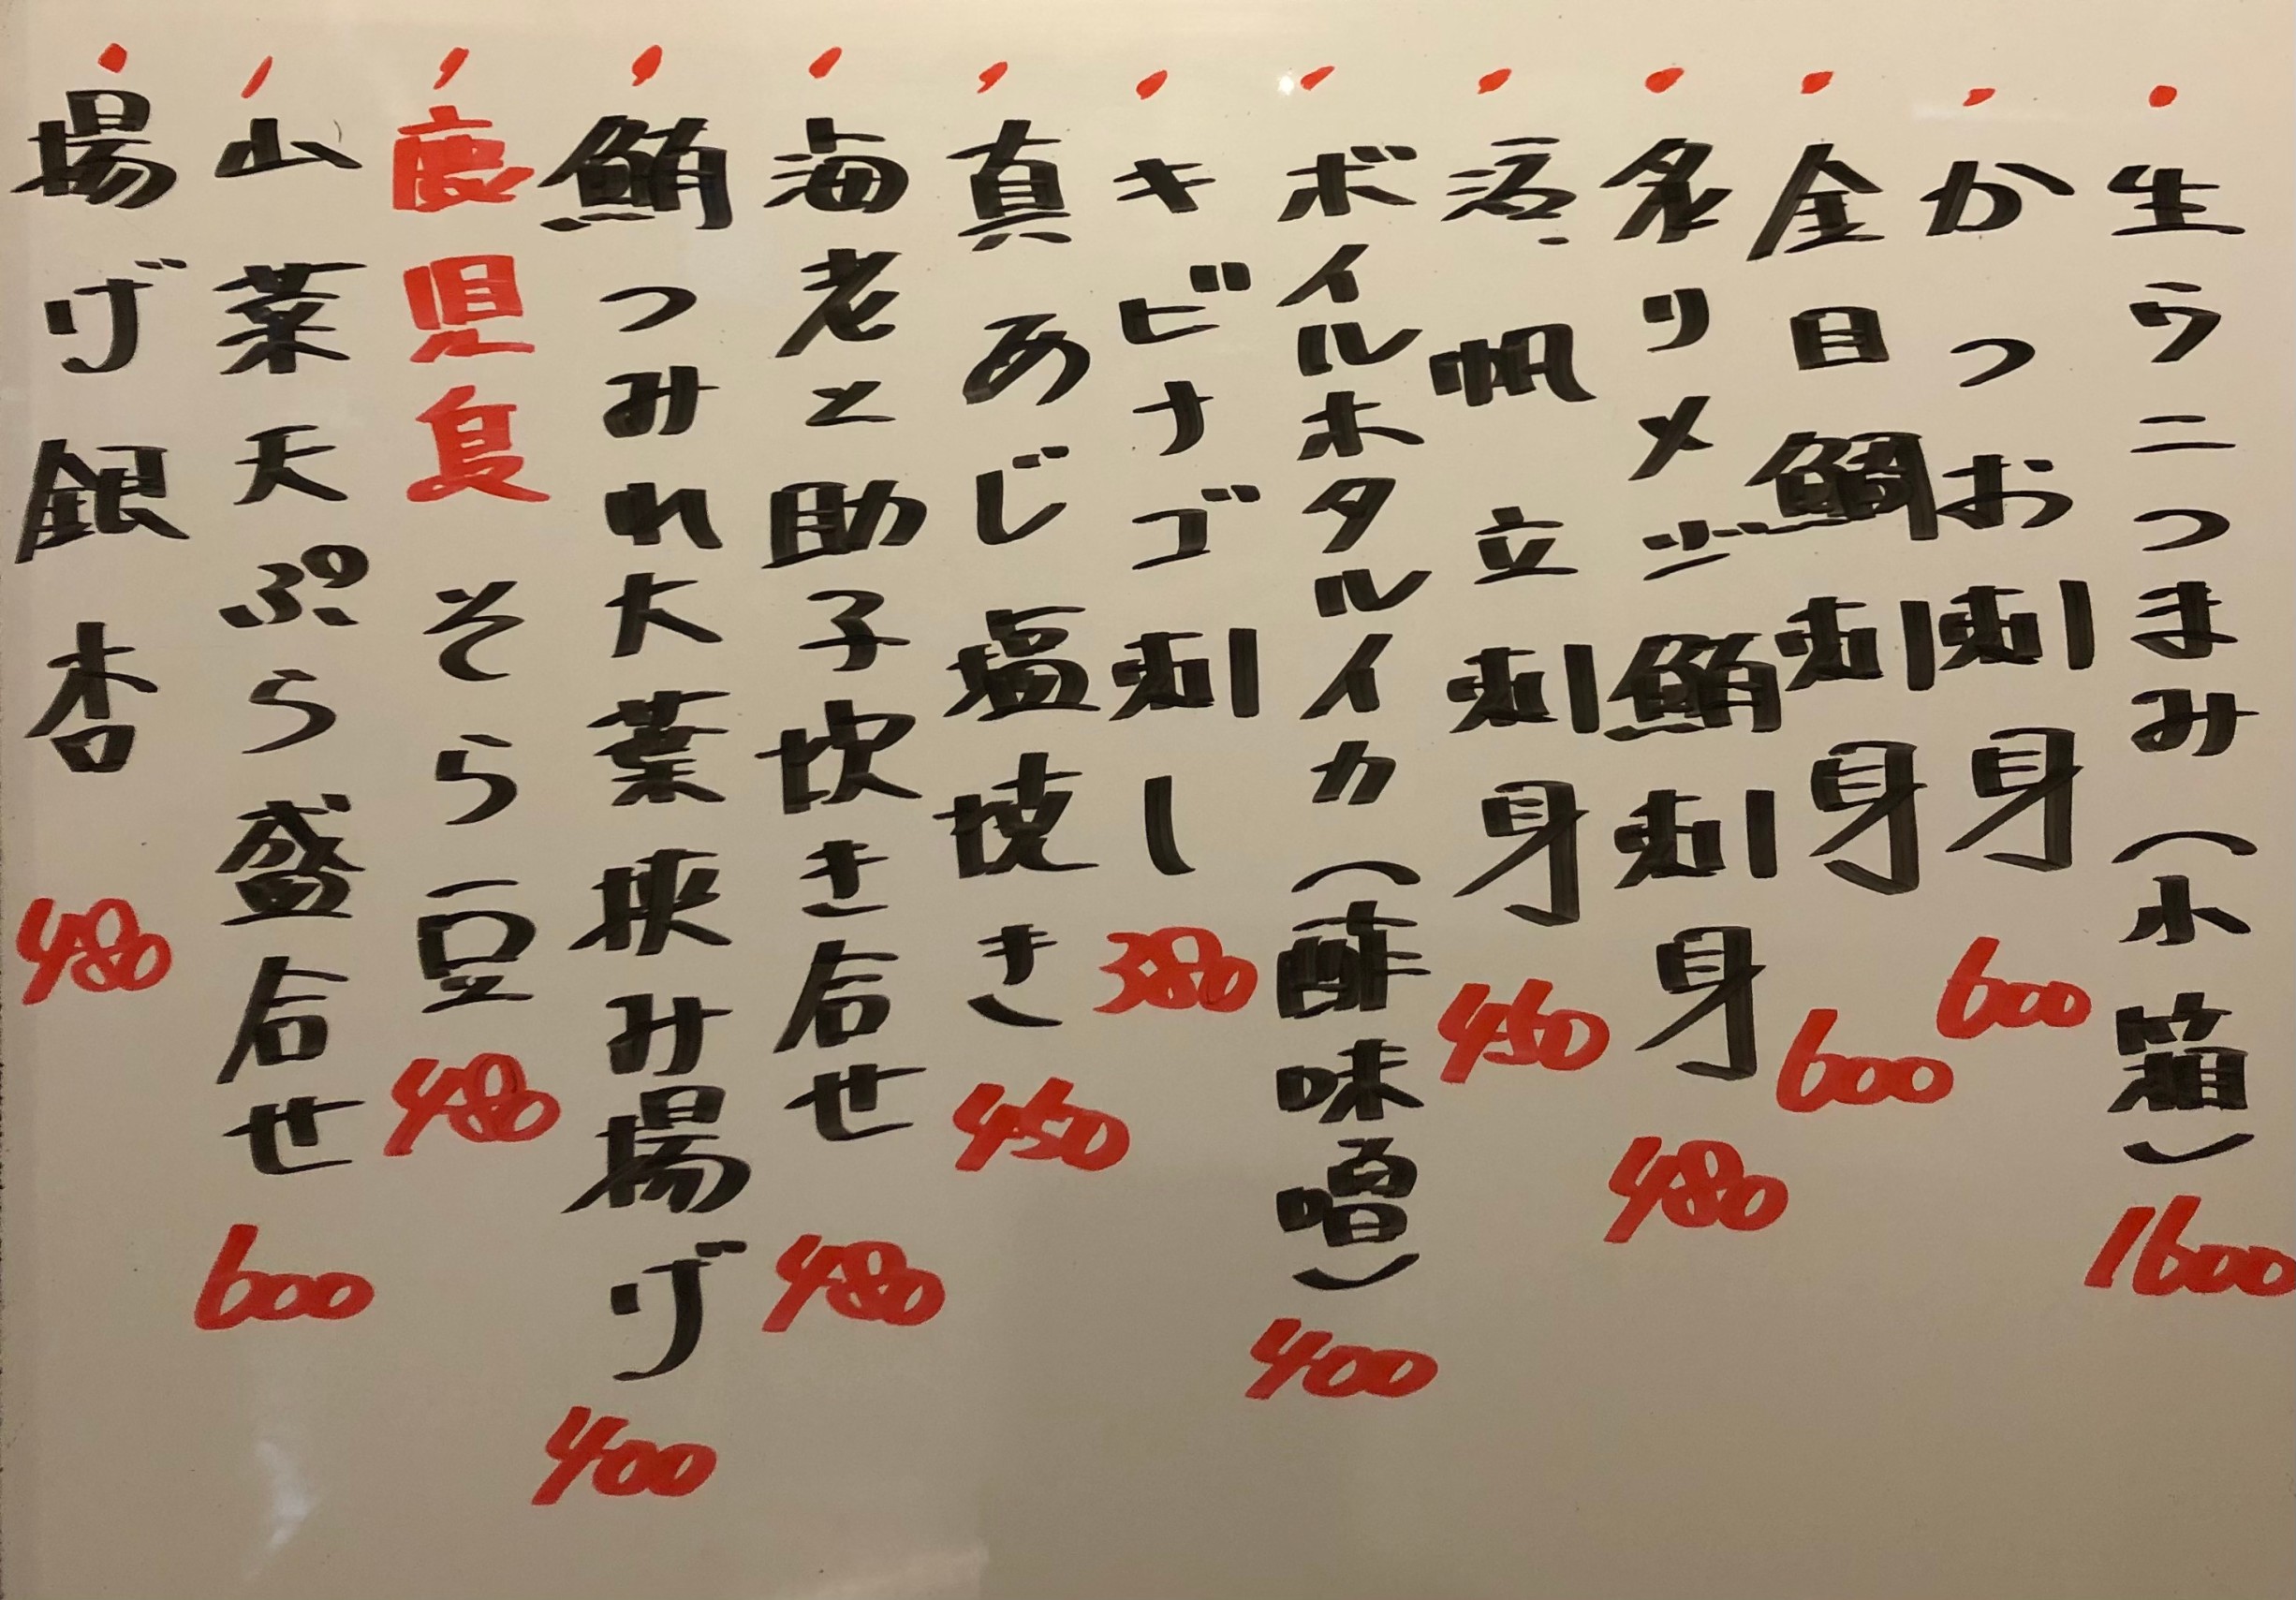 生ウニつまみ（小箱）1600
かつお刺身 600
金目鯛刺身 600
炙りメジ鮪刺身 480
活帆立刺身 450
ボイルホタルイカ（酢味噌）400
キビナゴ刺し 380
真あじ塩焼き 450
海老と助子炊き合せ 480
鮪つみれ大葉挟み揚げ 400
鹿児島そら豆 480
山菜天ぷら盛合せ 600
揚げ銀杏 480